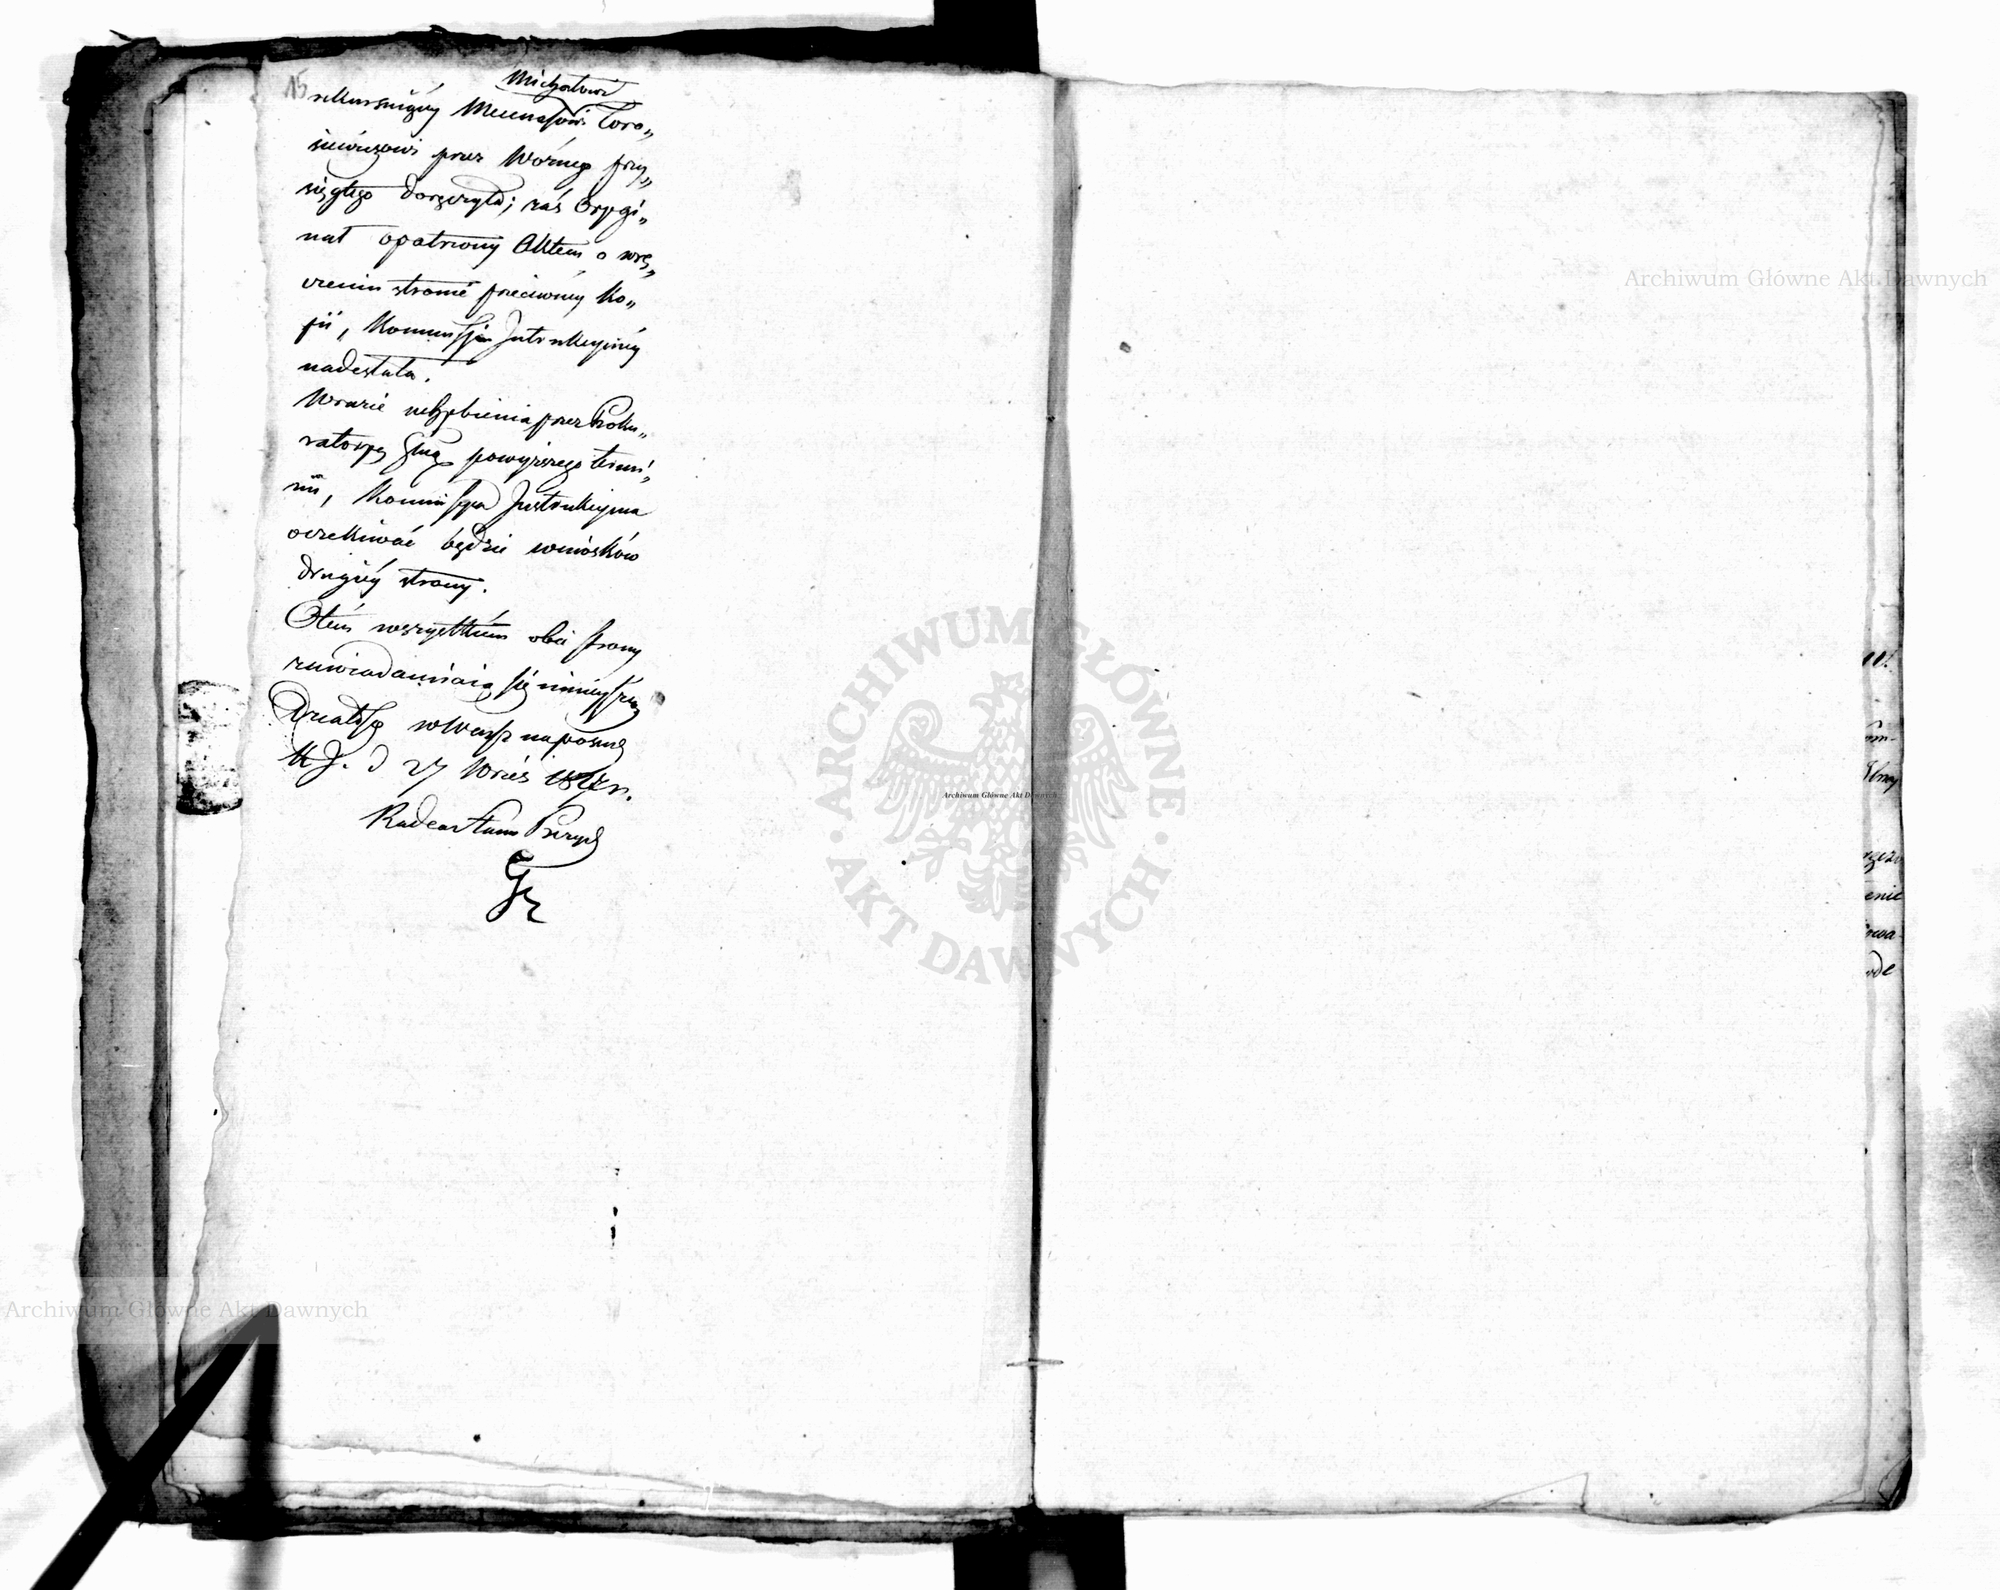 15
Michałowi
rekursuiący Mecenasowi Toro„
siewiczowi przez Woźnego przy„
sięgłego doręczyła; zaś Orygi„
nał opatrzony Aktem o wrę„
czeniu stronie przeciwnéy ko„
pii, Kommissÿi Jnstrukcyinéy
nadesłała.
Wrazie uchybienia przez Proku„
ratoryą Glną powyższego termi„
nu, Kommissya Jnstrukcyina
oczekiwać będzie wniosków
drugiéy strony.
Otém wszystkiém obie strony
zawiadamiaią się ninieyszém
Działo się w Warsz na posiedz
K J. d 27 Wrześ
Radca Stanu Prezyd
Archiwum Główne Akt Dawnych
Archiwum Główne Akt Dawnych
ARCHIWUM GŁÓWNE · AKT DAWNYCH ·
Archiwum Główne Akt Dawnych